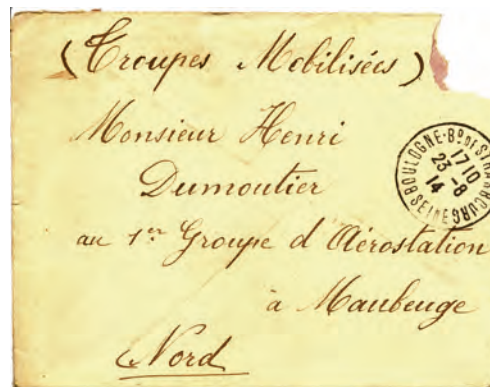 (Troupes Mobilisées)
Monsieur Henri
Dumoutier
au 1er Groupe d'Aérostation
à Maubeuge
Nord
BOULOGNE-Bd DE STRASBOURG
1710
23-8
14
SEINE